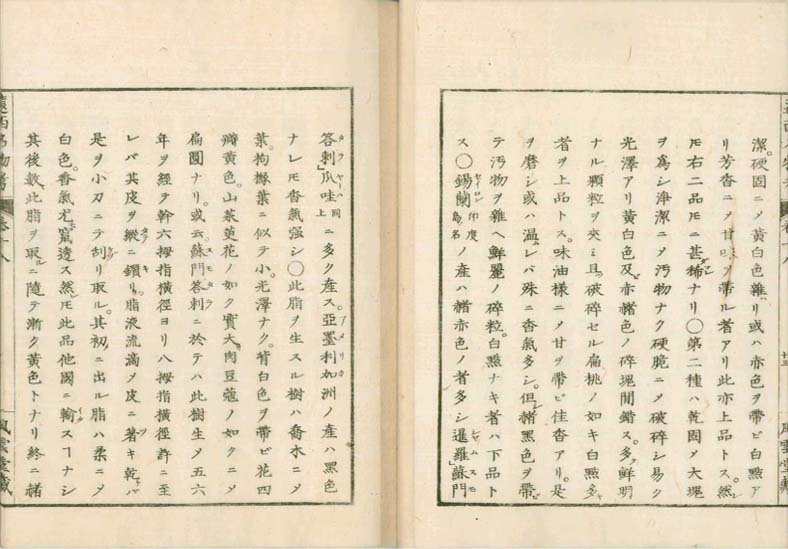 潔。硬固ニ〆黄白色雜リ或ハ赤色ヲ帶ビ白點ア
リ芳香ニ〆甘味ヲ帶ル者アリ此亦上品トス。然
𪜈右二品𪜈ニ甚稀ナリ〇第二種ハ乾固〆大塊
ヲ爲シ淨潔ニ〆汚物ナク硬脆ニ〆破碎シ易ク
光澤アリ黄白色及赤褐色ノ碎塊間錯ス。多ク鮮明
ナル顆粒ヲ夾ミ且破碎セル扁桃ノ如キ白點多キ
者ヲ上品トス。味油様ニ〆甘ヲ帶ビ佳香アリ。是
ヲ磨シ或ハ温レバ殊ニ香氣多シ。但褐黑色ヲ帶ビ
テ汚物ヲ雜ヘ鮮麗ノ碎粒。白點ナキ者ハ下品ト
ス〇錫蘭印度島名ノ産ハ赭赤色ノ者多シ暹羅蘇門
答剌爪哇同上ニ多ク産ス。亞墨利加洲ノ産ハ黑色
ナレ𪜈香氣强シ〇此脂ヲ生スル樹ハ喬木ニ〆
葉。枸櫞葉ニ似テ小。光澤ナク。背白色ヲ帶ビ花四
瓣黄色。山茱萸花ノ如ク實大サ肉豆蔲ノ如クニ〆
扁圓ナリ。或云蘇門答剌ニ於テハ此樹生〆五六
年ヲ經ヲ幹六拇指横徑ヨリ八拇指横徑許ニ至
レバ其皮ヲ縱ニ鑽リ。脂液流滴〆皮ニ著キ乾ケバ
是ヲ小刀ニテ刮リ取ル。其初ニ出ル脂ハ柔ニ〆
白色。香氣尤竄透ス然𪜈此品他國ニ輸スヿナシ
其後數此脂ヲ取ルニ隨テ漸ク黄色トナリ終ニ赭
遠西名物考
卷十八
風雲堂藏
十三
風雲堂藏